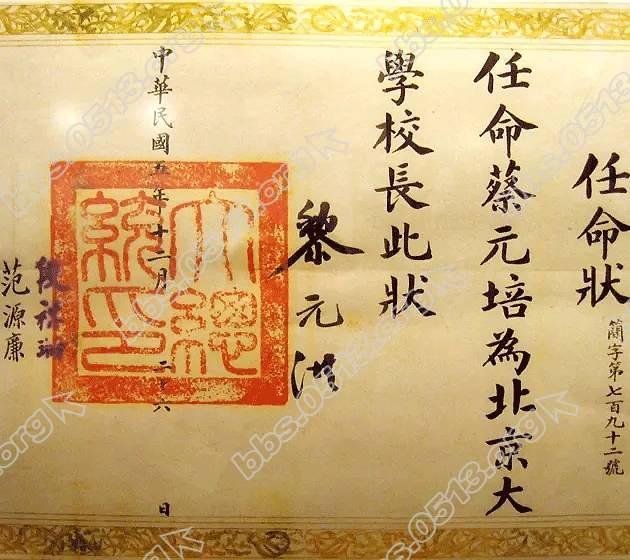 任命狀
簡字第七百九十二號
任命蔡元培為北京大
學校長此狀
黎元洪
大總統印
中華民國五年十二月二十六日
段祺瑞
范源廉
bbs.0513.org